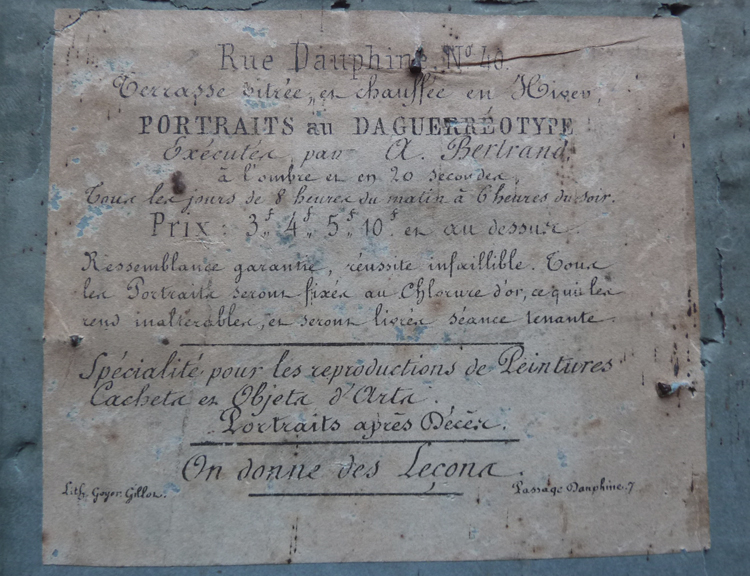 Rue Dauphine, No 40.
Terrasse vitrée, et chauffée en Hiver,
PORTRAITS au DAGUERRÉOTYPE
Exécutés par A. Bertrand,
à l'ombre et en 20 secondes,
Tous les jours de 8 heures du matin à 6 heures du soir.
Prix : 3f, 4f, 5f, 10f et au dessus.
Ressemblance garantie, réussite infaillible. Tous
les Portraits seront fixés au Chlorure d'or, ce qui les
rend inaltérables, et seront livrés séance tenante
Spécialité pour les reproductions de Peintures
Cachets et Objets d'Arts.
Portraits après Décès.
On donne des Leçons.
Lith. Goyer. Passage Dauphine. 7